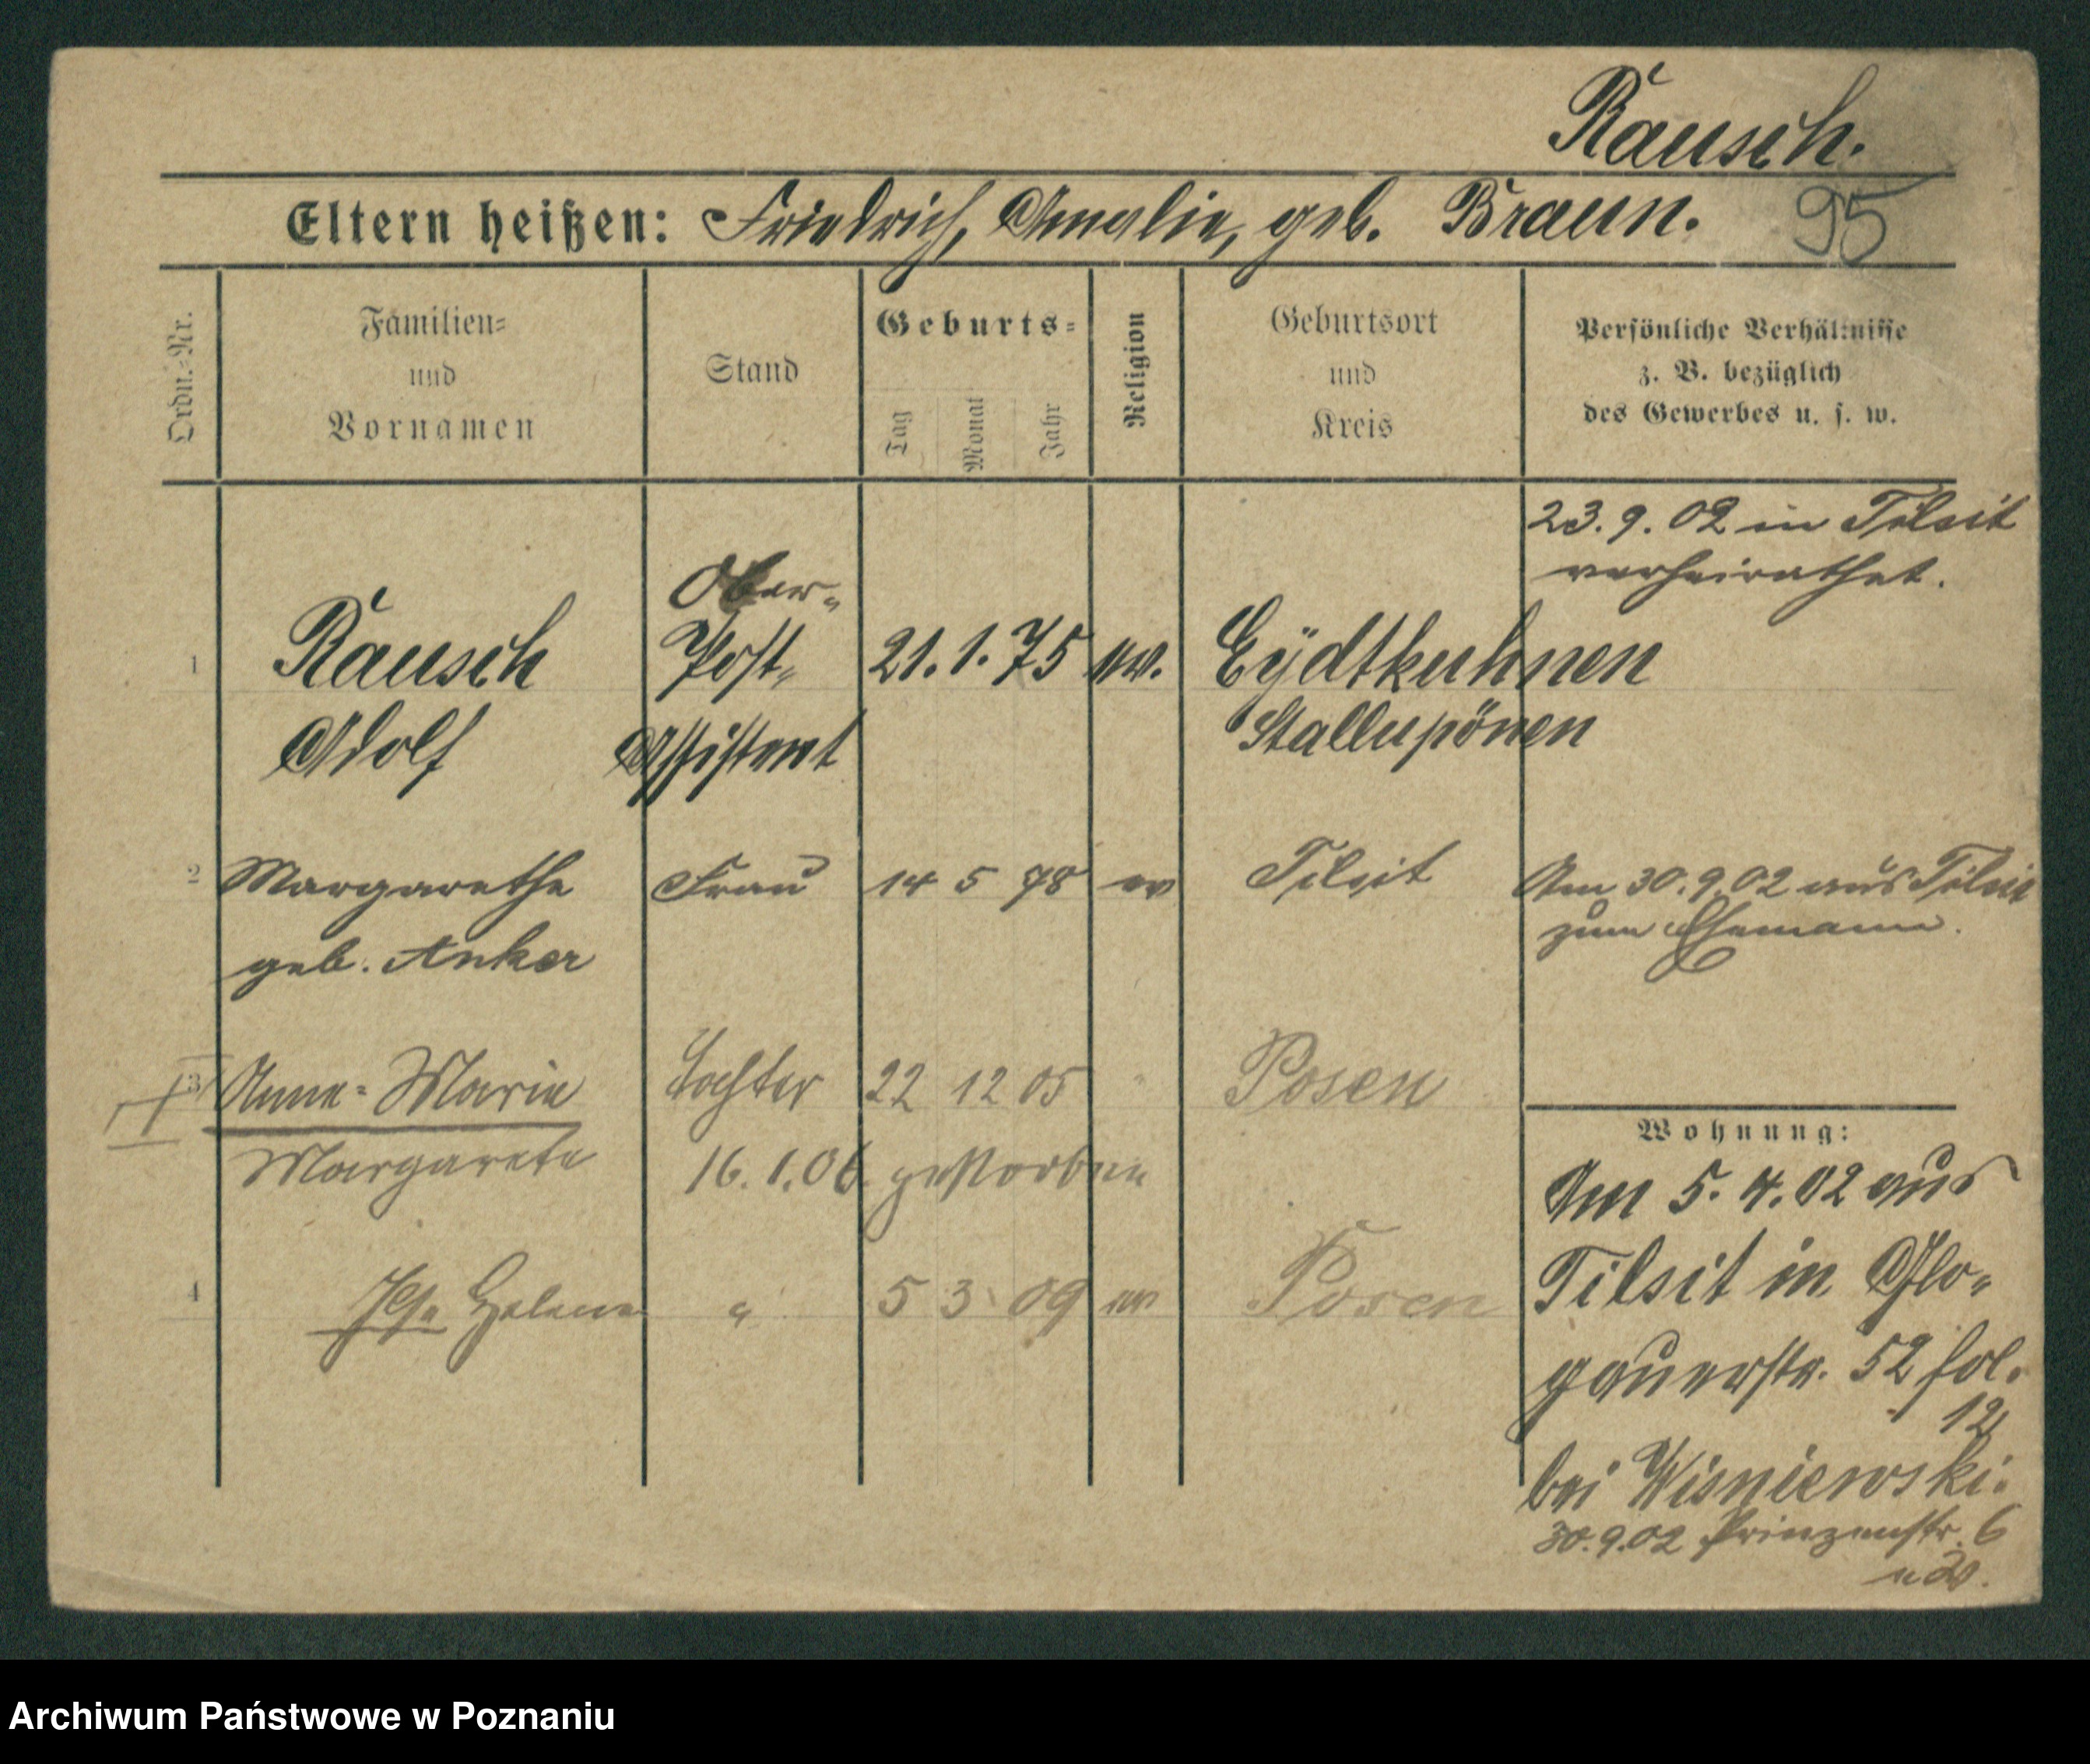 Rausch.
Eltern heißen: Friedrich, Amalie, geb. Braun.
95
Ordn.-Nr.
Familien-
und
Vornamen
Stand
Geburts-
Tag
Monat
Jahr
Religion
Geburtsort
und
Kreis
Persönliche Verhältnisse
z. B. bezüglich
des Gewerbes u. s. w.
23.9.02 in Tilsit
verheirathet.
1 Rausch
Adolf
Ober-
Post-
Assistent
21.1.75 ev. Eydtkuhnen
Stallupönen
2 Margarethe Frau 14 5 78 ev Tilsit
geb. Anker
Am 30.9.02 aus Tilsit
zum Ehemann.
3 Anna-Marie Tochter 22 12 05 Posen
Margarete 16.1.06. gestorben
4 Ilse Helene " 5 3 09 ev Posen
Wohnung:
Am 5.4.02 aus
Tilsit in Glo-
gauerstr. 52 fol.
12
bei Wisniewski.
30.9.02 Prinzenstr. 6